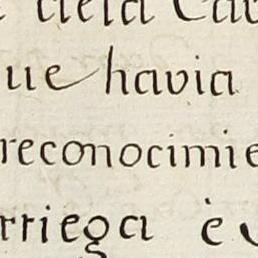 ue havia
reconocimie
rriega è